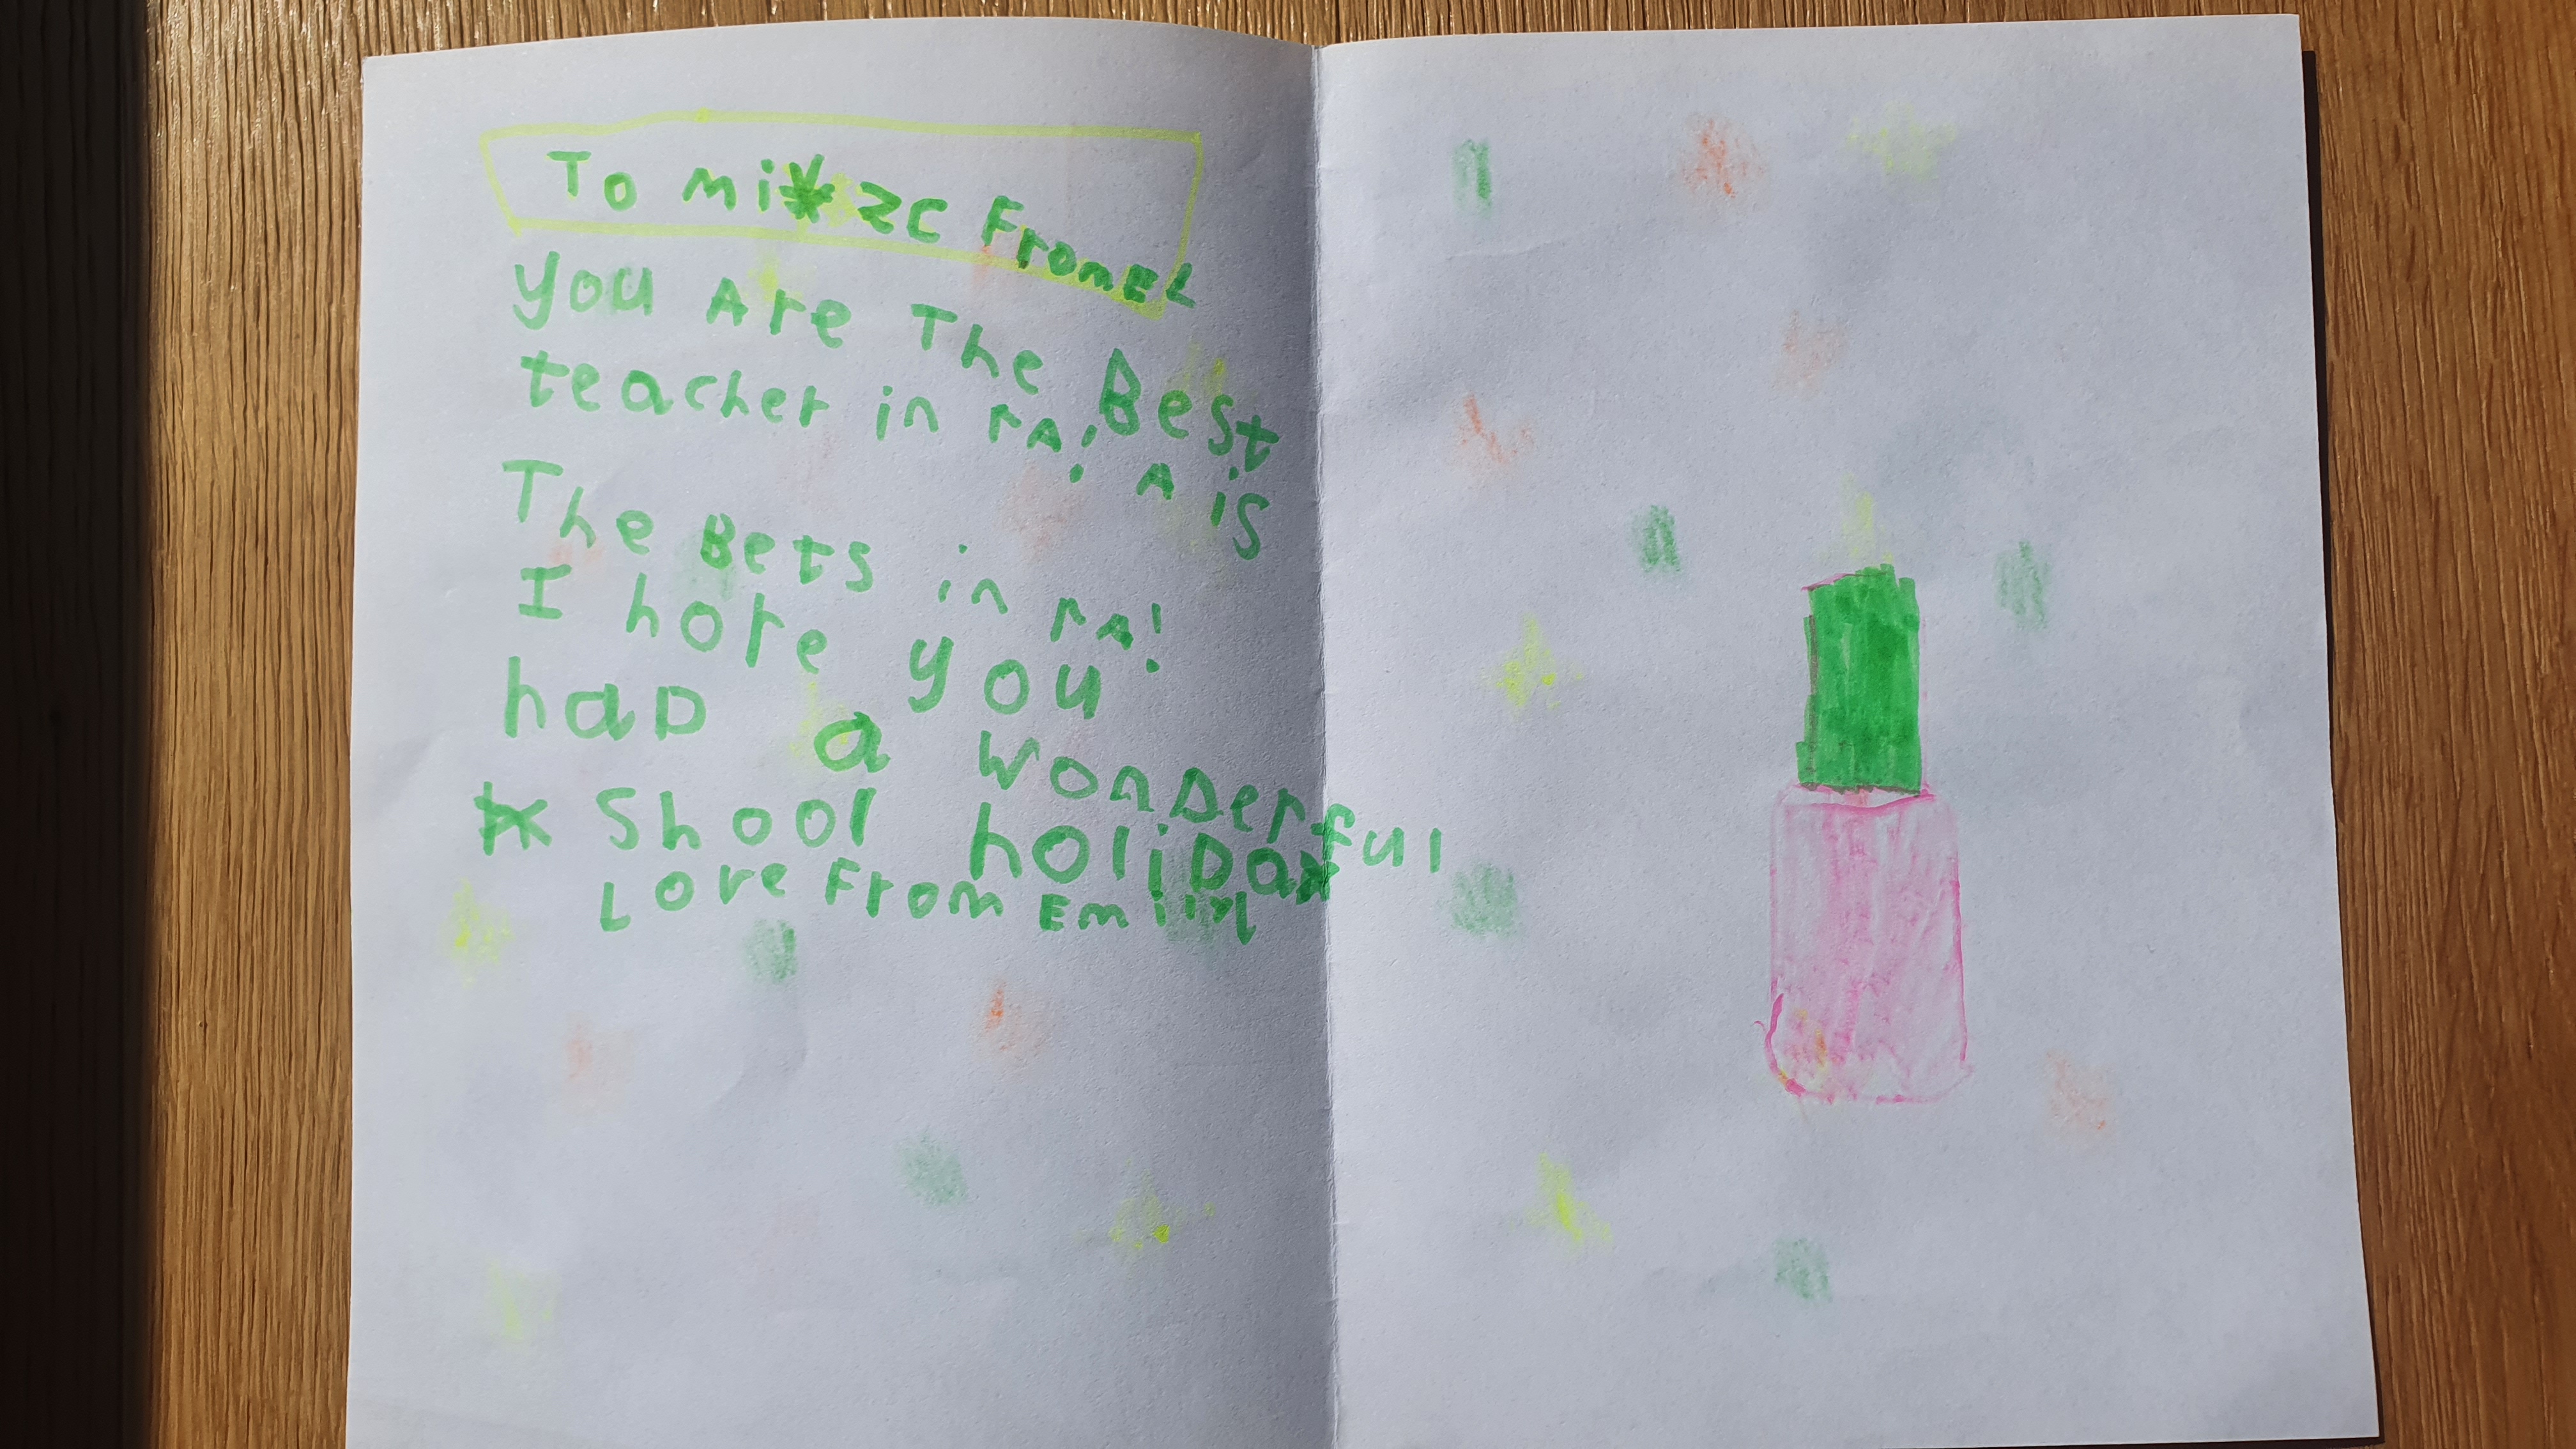 To mi zc From EL
you Are The Best
teacher in rA! A is
The Bets in rA!
I hope you
haD a wonDerful
Shool holiDay
Love From Emily